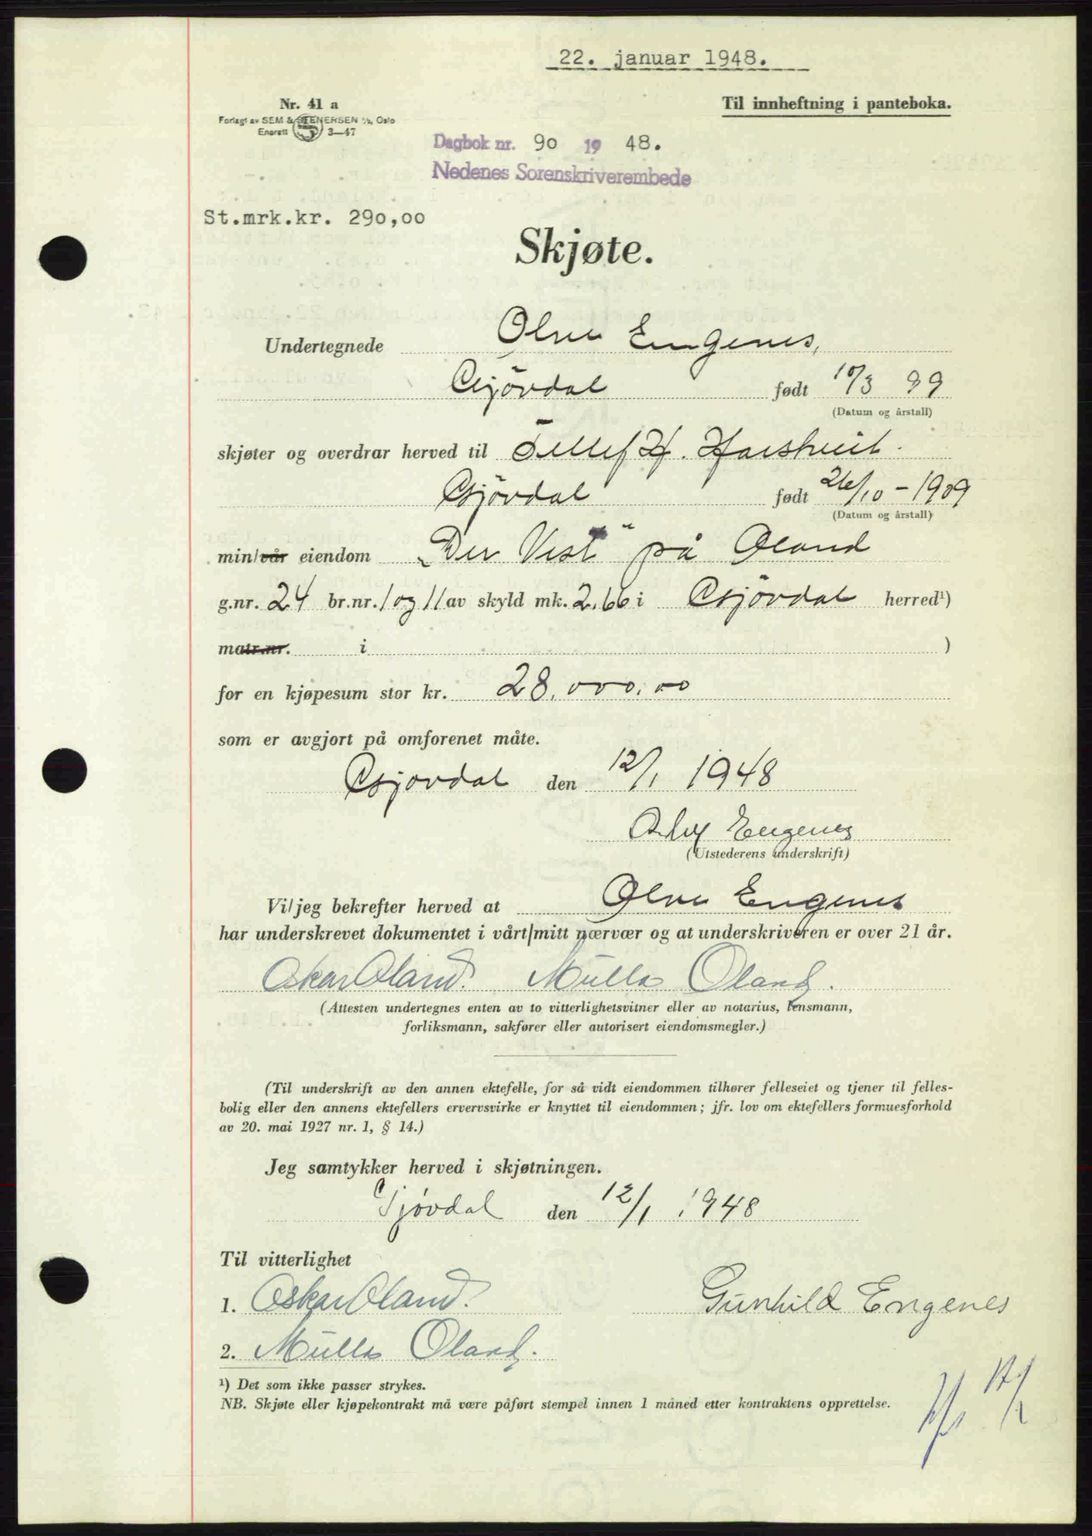 22. januar 1948.
Nr. 41 a
Til innheftning i panteboka.
Forlagt av SEM & STENERSEN A/S, Oslo
Enerett 3—47
Dagbok nr. 90 19 48.
Nedenes Sorenskriverembede
St.mrk.kr. 290,00
Skjøte.
Undertegnede Olav Engenes,
Gjövdal født 10/3 99
(Datum og årstall)
skjøter og overdrar herved til Tellef H. Harstveit.
Gjövdal født 26/10 - 1909
(Datum og årstall)
min/vår eiendom „Der Vest" på Øland
g.nr. 24 br.nr. 1 og 11 av skyld mk. 2,66 i Gjövdal herred¹)
matr.nr. i )
for en kjøpesum stor kr. 28.000,00
som er avgjort på omforenet måte.
Gjövdal den 12/1 1948
Olav Engenes
(Utstederens underskrift)
Vi/jeg bekrefter herved at Olav Engenes
har underskrevet dokumentet i vårt/mitt nærvær og at underskriveren er over 21 år.
Oskar Øland. Mulla Öland.
(Attesten undertegnes enten av to vitterlighetsvitner eller av notarius, lensmann,
forliksmann, sakfører eller autorisert eiendomsmegler.)
(Til underskrift av den annen ektefelle, for så vidt eiendommen tilhører felleseiet og tjener til felles-
bolig eller den annens ektefellers ervervsvirke er knyttet til eiendommen; jfr. lov om ektefellers formuesforhold
av 20. mai 1927 nr. 1, § 14.)
Jeg samtykker herved i skjøtningen.
Gjövdal den 12/1 1948
Til vitterlighet
1. Oskar Øland. Gunhild Engenes
2. Mulla Öland.
¹) Det som ikke passer strykes.
NB. Skjøte eller kjøpekontrakt må være påført stempel innen 1 måned etter kontraktens opprettelse.